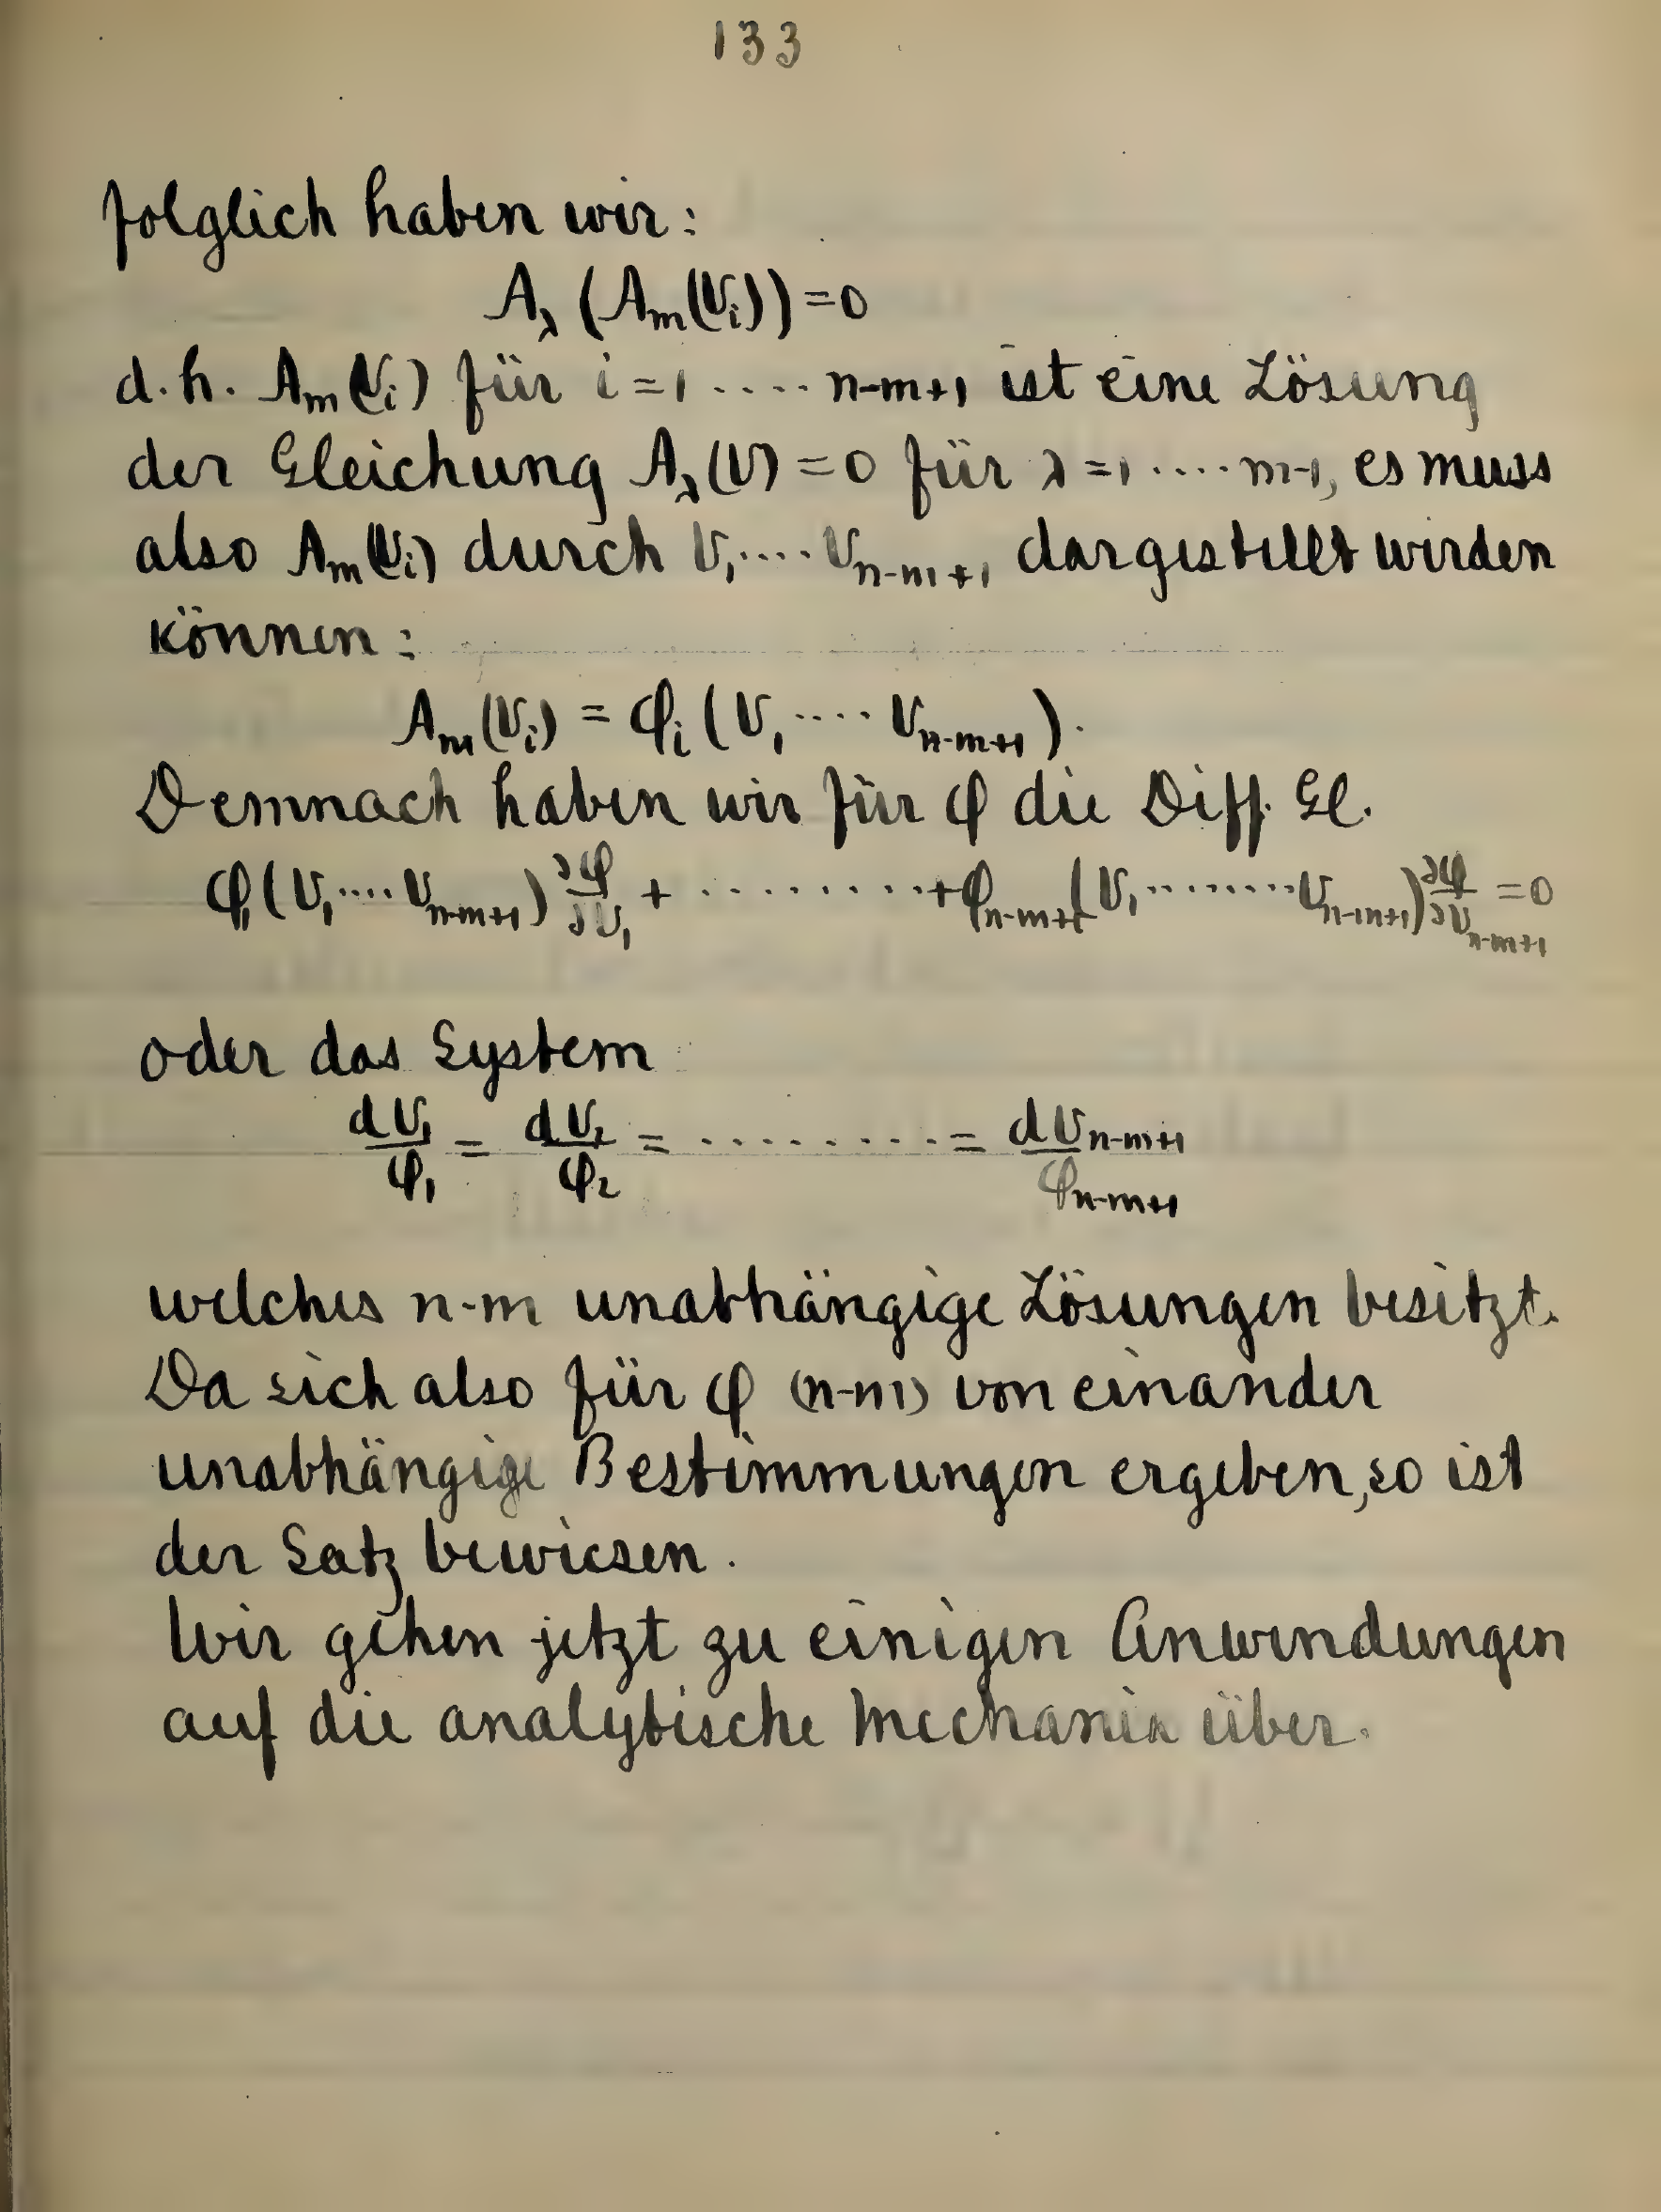 133
folglich haben wir:
A_λ (A_m(U_i)) = 0
d.h. A_m(U_i) für i = 1 ..... n-m+1 ist eine Lösung
der Gleichung A_λ(U) = 0 für λ = 1 ..... m-1, es muss
also A_m(U_i) durch U_1 .... U_{n-m+1} dargestellt werden
können:
A_m(U_i) = φ_i (U_1 .... U_{n-m+1}).
Demnach haben wir für φ die Diff. Gl.
φ_1(U_1 .... U_{n-m+1}) ∂φ/∂U_1 + .......... + φ_{n-m+1}(U_1 ........ U_{n-m+1}) ∂φ/∂U_{n-m+1} = 0
oder das System
dU_1/φ_1 = dU_2/φ_2 = .......... = dU_{n-m+1}/φ_{n-m+1}
welches n-m unabhängige Lösungen besitzt.
Da sich also für φ (n-m) von einander
unabhängige Bestimmungen ergeben, so ist
der Satz bewiesen.
Wir gehen jetzt zu einigen Anwendungen
auf die analytische Mechanik über.